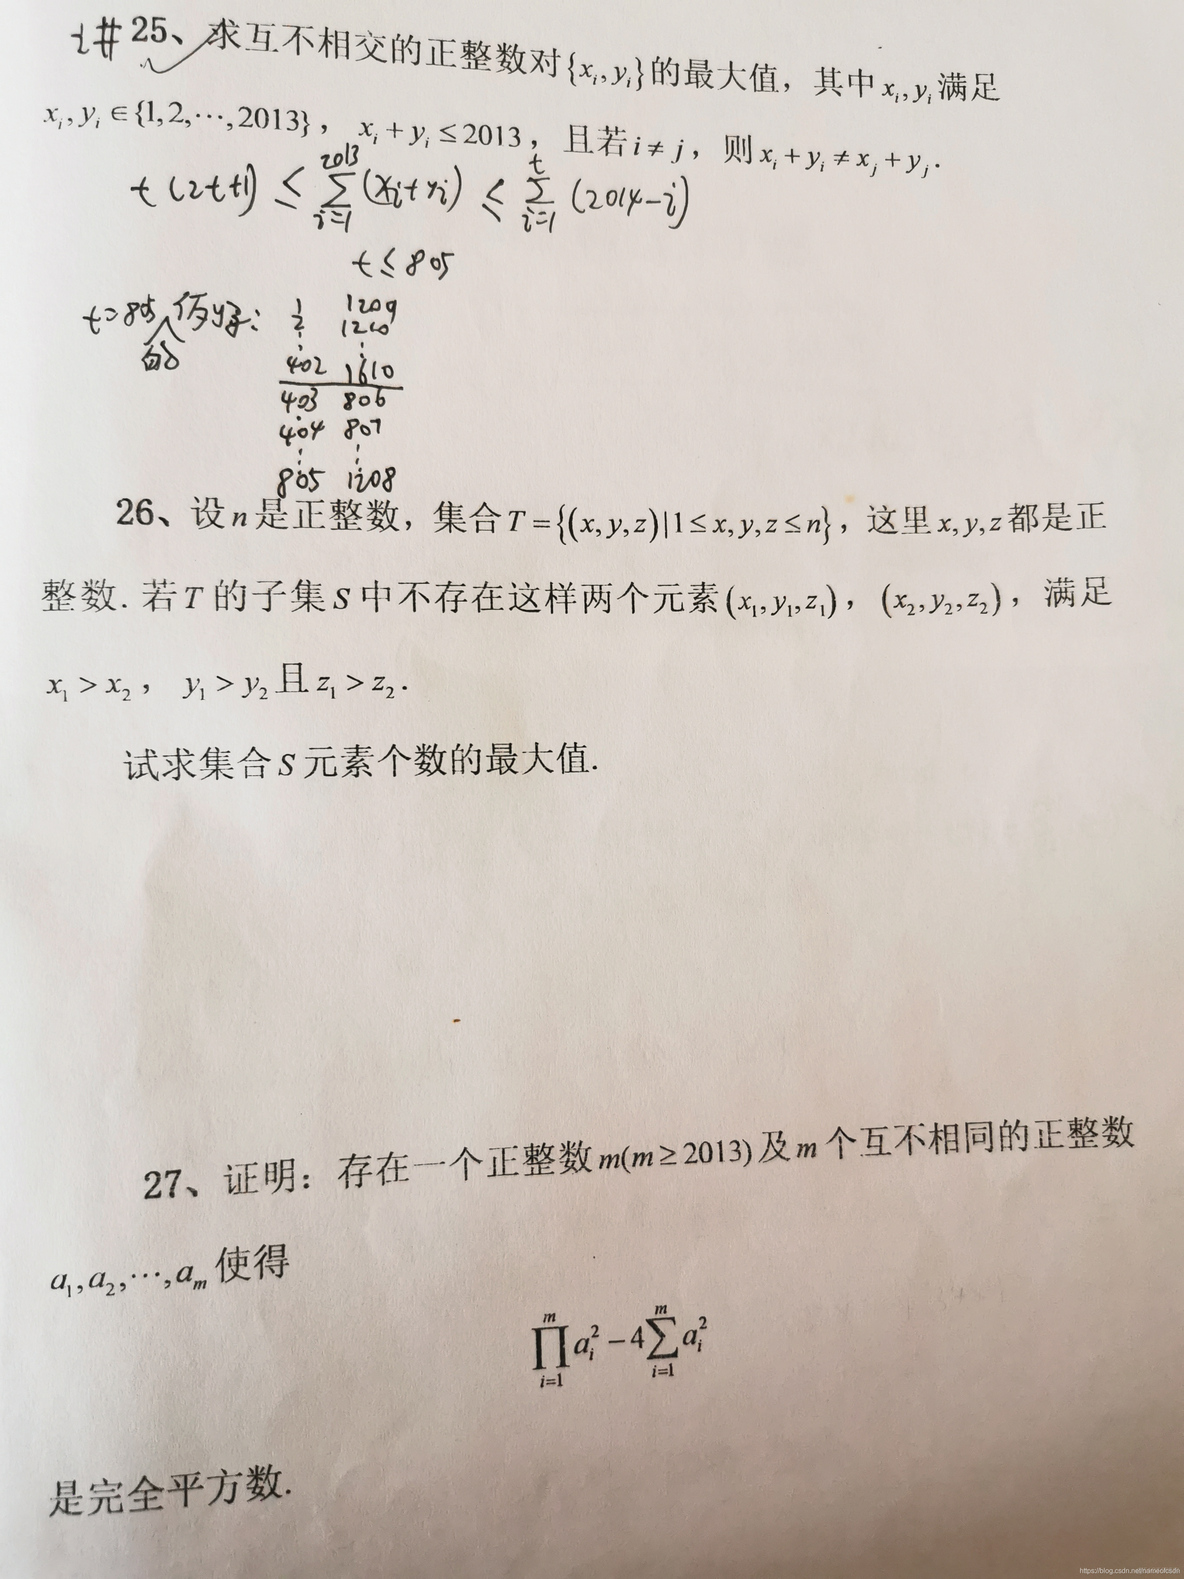 讲 25、求互不相交的正整数对{xᵢ,yᵢ}的最大值，其中xᵢ,yᵢ满足
xᵢ,yᵢ∈{1,2,⋯,2013}， xᵢ+yᵢ≤2013，且若i≠j，则xᵢ+yᵢ≠xⱼ+yⱼ.
t(2t+1) ≤ ∑_{i=1}^{2013}(xᵢ+yᵢ) ≤ ∑_{i=1}^{t}(2014-i)
t≤805
t=805的例子: 1 1209
2 1210
⋮ ⋮
402 1610
403 806
404 807
⋮ ⋮
805 1208
26、设n是正整数，集合T={(x,y,z)|1≤x,y,z≤n}，这里x,y,z都是正
整数. 若T的子集S中不存在这样两个元素(x₁,y₁,z₁)，(x₂,y₂,z₂)，满足
x₁>x₂， y₁>y₂且z₁>z₂.
试求集合S元素个数的最大值.
27、证明：存在一个正整数m(m≥2013)及m个互不相同的正整数
a₁,a₂,⋯,aₘ使得
∏_{i=1}^{m}aᵢ²-4∑_{i=1}^{m}aᵢ²
是完全平方数.
https://blog.csdn.net/nameofcsdn